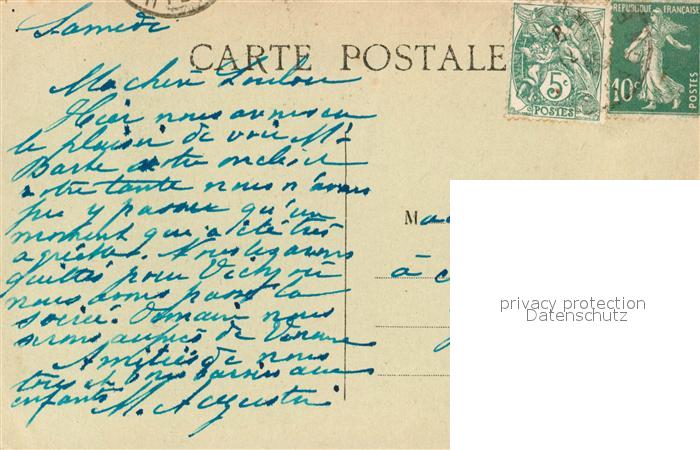 Samedi
CARTE POSTALE
REPUBLIQUE FRANÇAISE
5c
POSTES
10c
POSTES
Ma chère Loulou
Hier nous avons eu
le plaisir de voir Mr
Barbe votre oncle et
votre tante nous n'avons
pu y passer qu'un
moment qui a été très
agréable. Nous les avons
quittés pour Vichy où
nous avons passé la
soirée. Demain nous
serons auprès de
Amitiés de nous
tous et bons baisers aux
enfants M.
Ma
à
privacy protection
Datenschutz